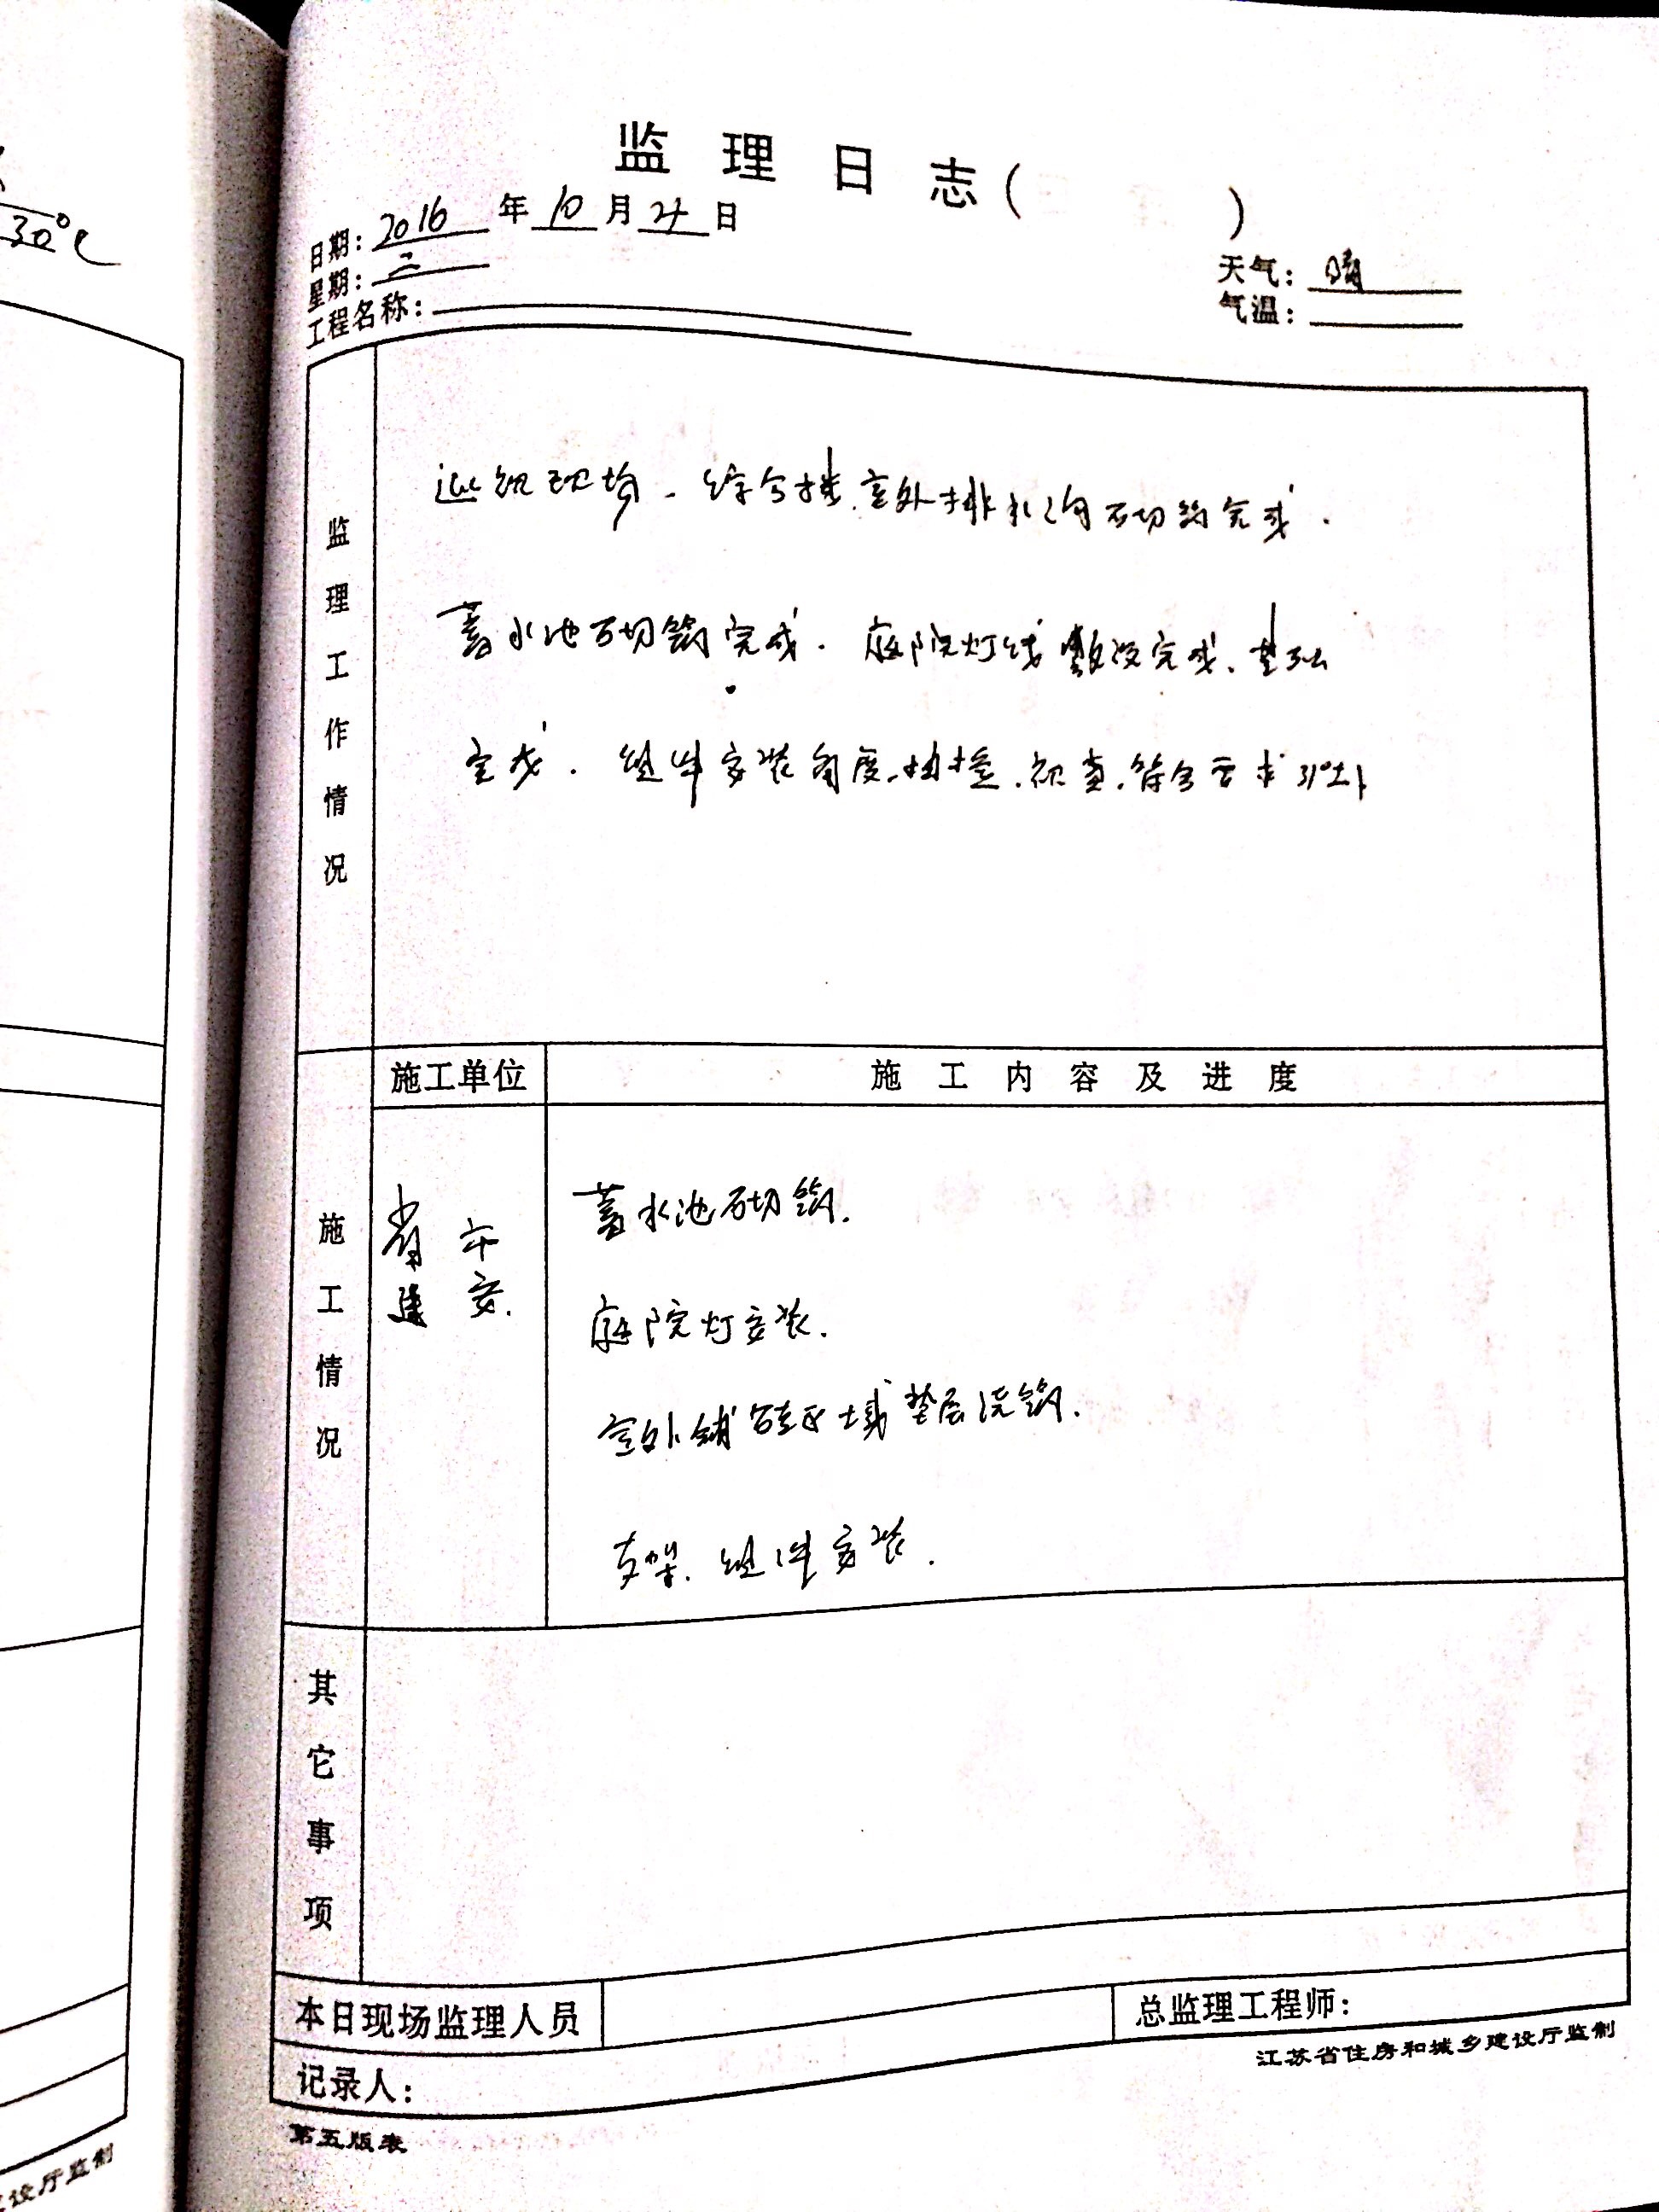 30℃
监理日志( )
日期: 2016 年 10 月 4 日
星期: 二
天气: 晴
工程名称:
气温:
监理工作情况
巡视现场. 综合楼室外排水沟石切筑完成.
蓄水池石切筑完成. 庭院灯线敷设完成. 基础
完成. 组件安装角度. 抽检. 视查. 符合要求
施工情况
施工单位
施工内容及进度
省
建 安.
蓄水池石切筑.
庭院灯安装.
室外铺砖区域垫层浇筑.
支架. 组件安装.
其它事项
本日现场监理人员
总监理工程师:
记录人:
江苏省住房和城乡建设厅监制
第五版表
设厅监制